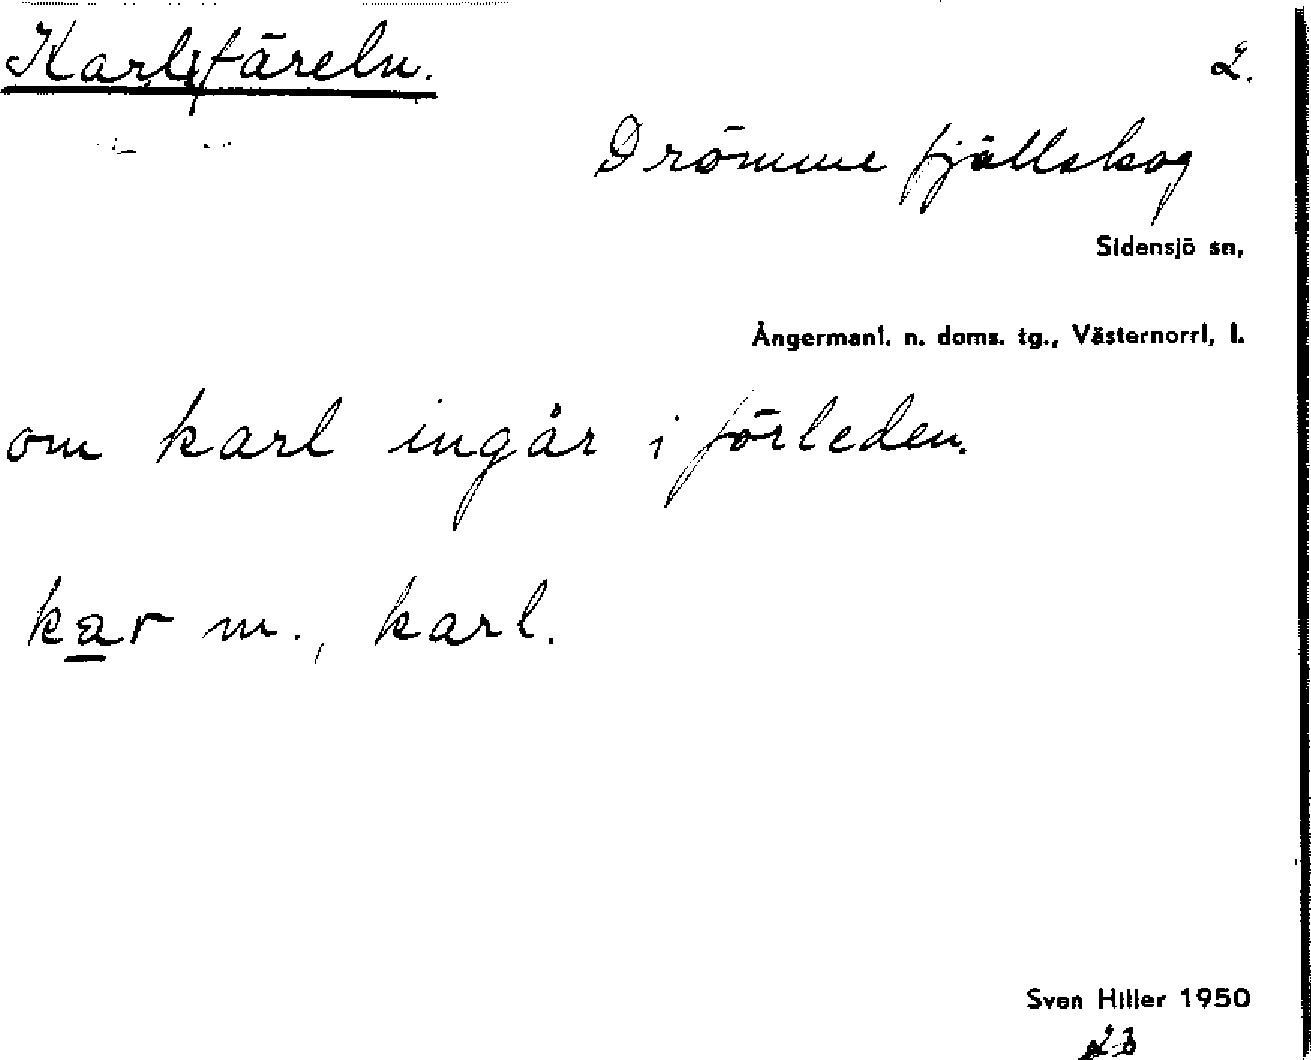 Karlsfäreln. 2.
Drömme fjällskog
Sidensjö sn,
Ångermanl. n. doms. tg., Västernorrl, l.
om karl ingår i förleden.
kar m., karl.
Sven Hiller 1950
23